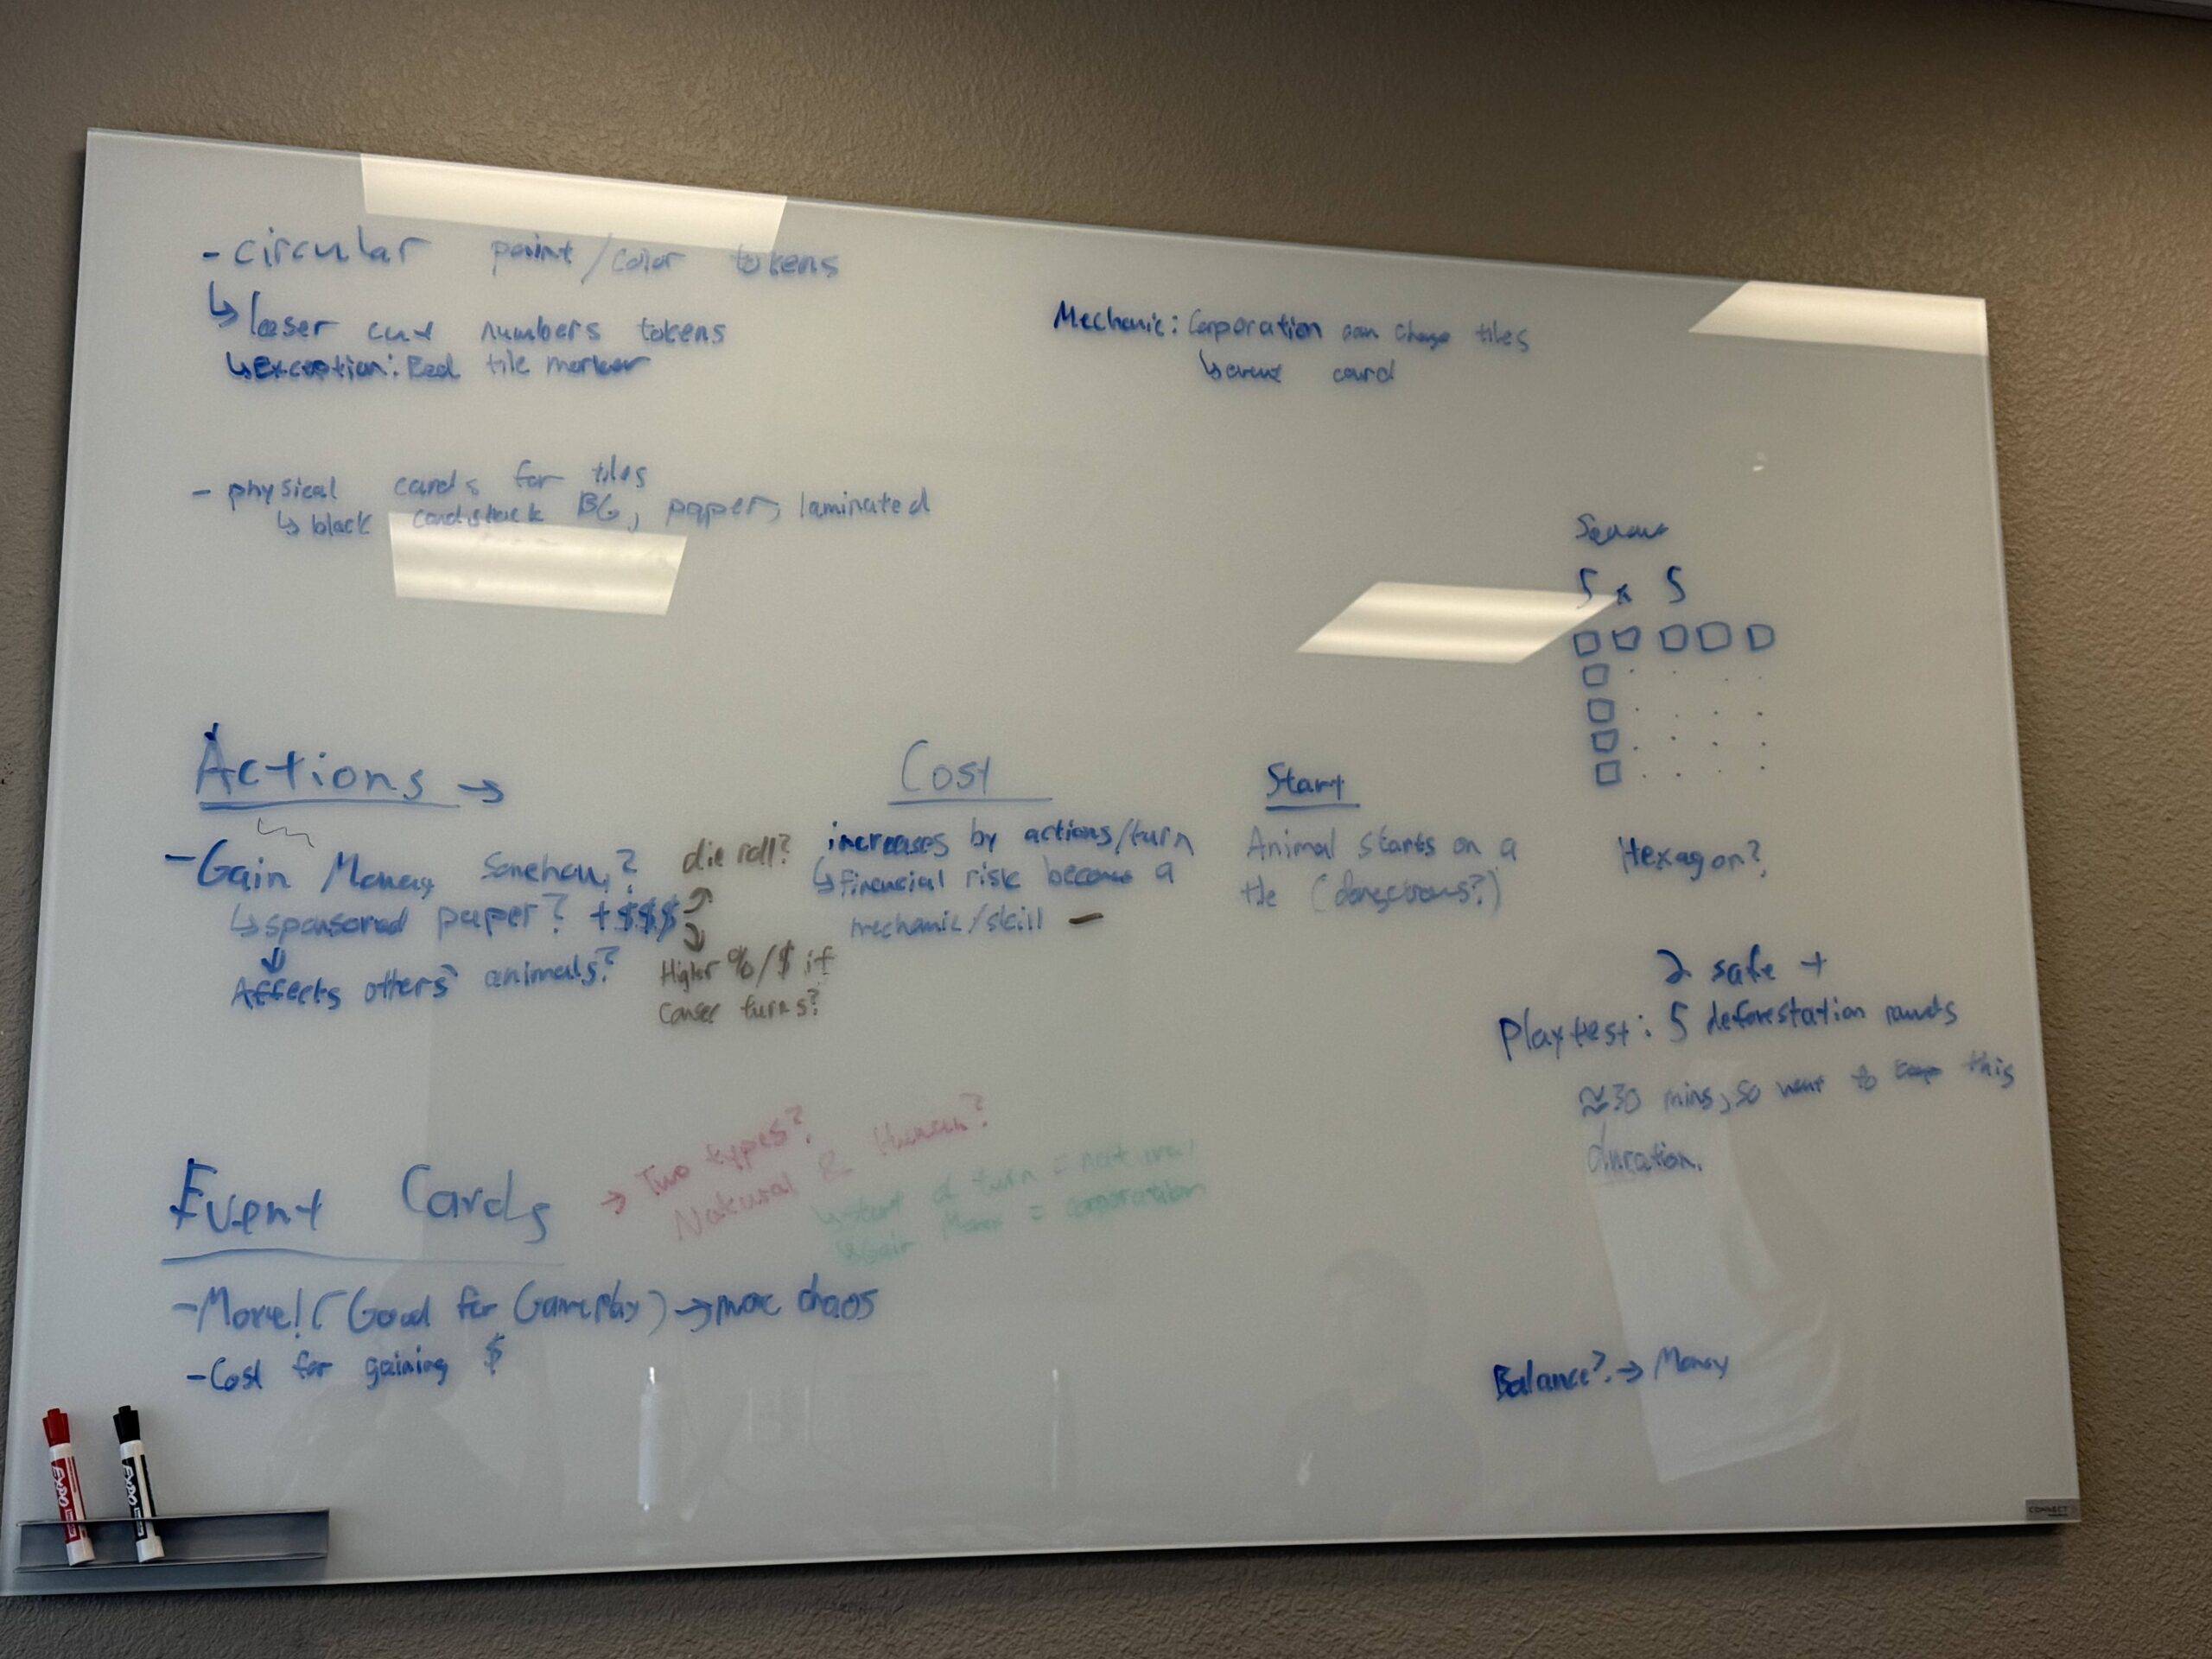 - circular paint/color tokens
↳ laser cut numbers tokens
↳ Exception: Bad tile marker
Mechanic: Corporation can change tiles
↳ event card
- physical cards for tiles
↳ black cardstock BG, paper, laminated
Square
5 x 5
Hexagon?
Actions →
- Gain Money Somehow?
↳ sponsored paper? +$$$
Affects others' animals?
die roll?
Higher %/$ if
consec turns?
Cost
increases by actions/turn
↳ financial risk becomes a
mechanic/skill
Start
Animal starts on a
tile (dangerous?)
2 safe +
Playtest: 5 deforestation rounds
≈30 mins, so want to keep this
duration.
Event Cards
→ Two types?
Natural & Human?
↳ start of turn = natural
↳ Gain Money = corporation
- More! (Good for Gameplay) → more chaos
- Cost for gaining $
Balance? → Money
EXPO
EXPO
CONNECT